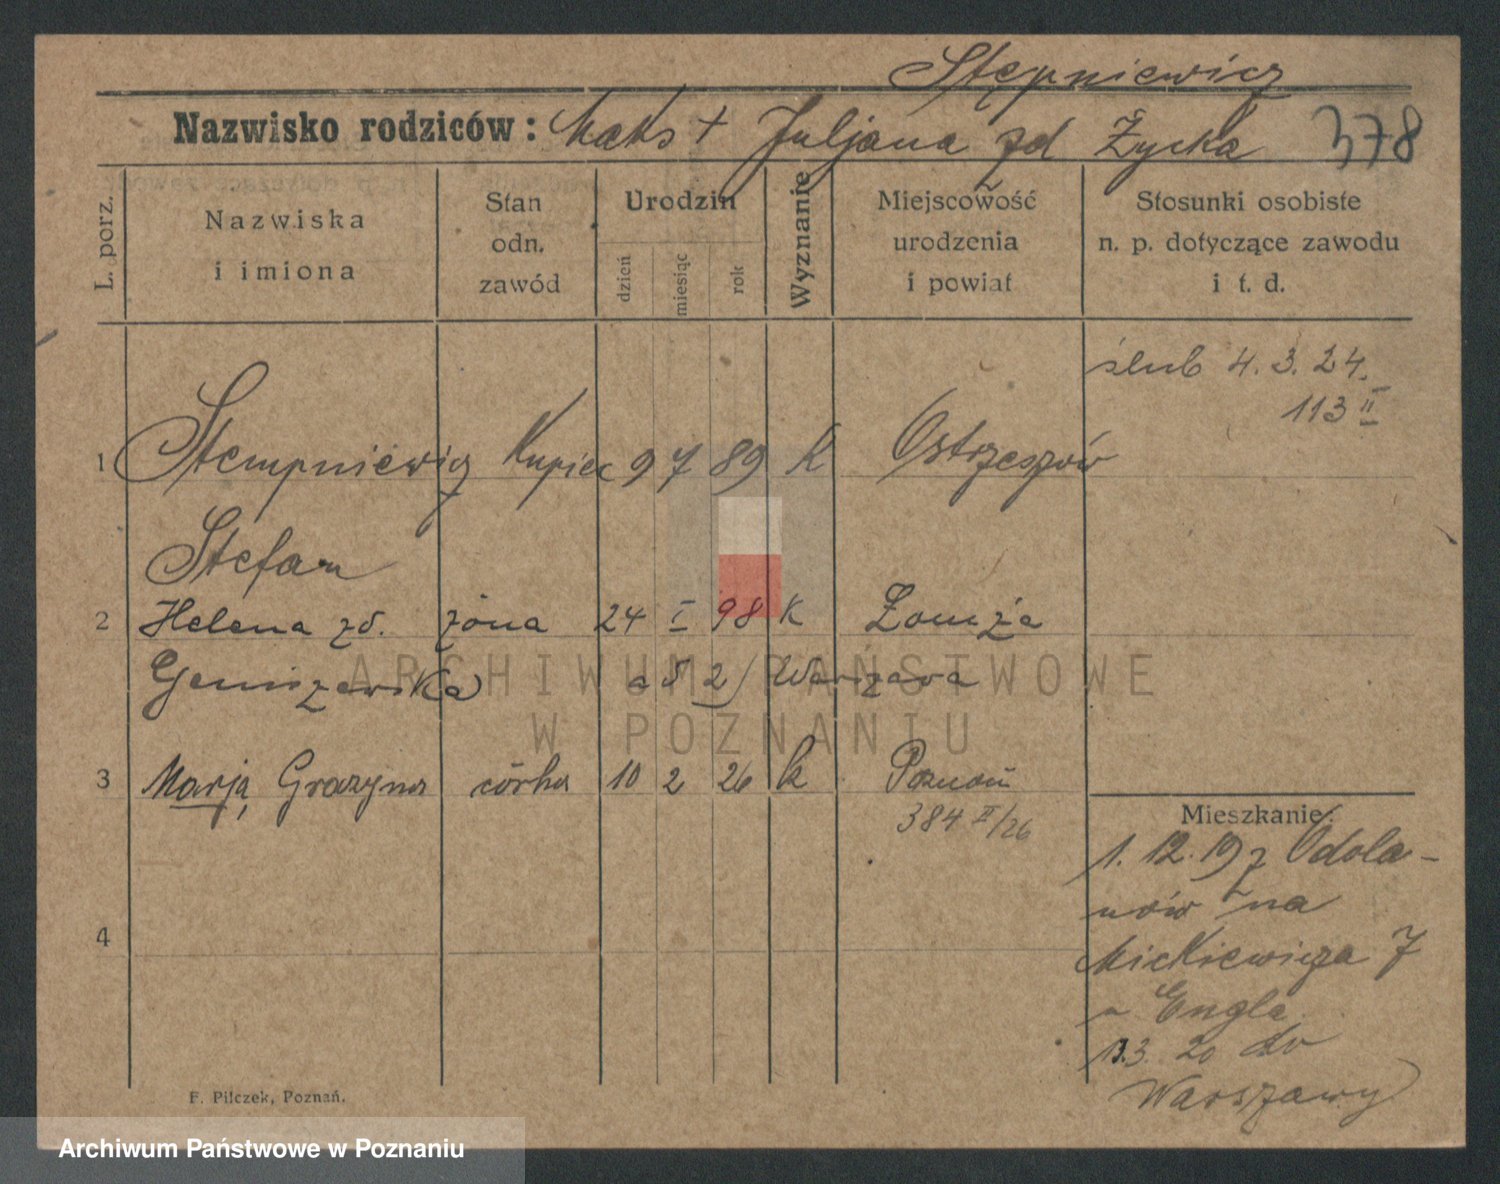 Stępniewicz
Nazwisko rodziców: Maks + Juljana zd Życka 378
L. porz.
Nazwiska i imiona
Stan odn. zawód
Urodzin
dzień
miesiąc
rok
Wyznanie
Miejscowość urodzenia i powiat
Stosunki osobiste n. p. dotyczące zawodu i t. d.
ślub 4. 3. 24.
113 II
1 Stempniewicz Kupiec 9 7 89 K Ostrzeszów
Stefan
2 Helena zd. żona 24 I 98 K Łomża
Warszawa
3 Marja, Grażyna córka 10 2 26 k Poznań
384 II/26
4
Mieszkanie:
1. 12. 19 z Odola-
nów na
Mickiewicza 7
u Engla
13.3. 20 do
Warszawy
F. Pilczek, Poznań.
ARCHIWUM PAŃSTWOWE
W POZNANIU
Archiwum Państwowe w Poznaniu